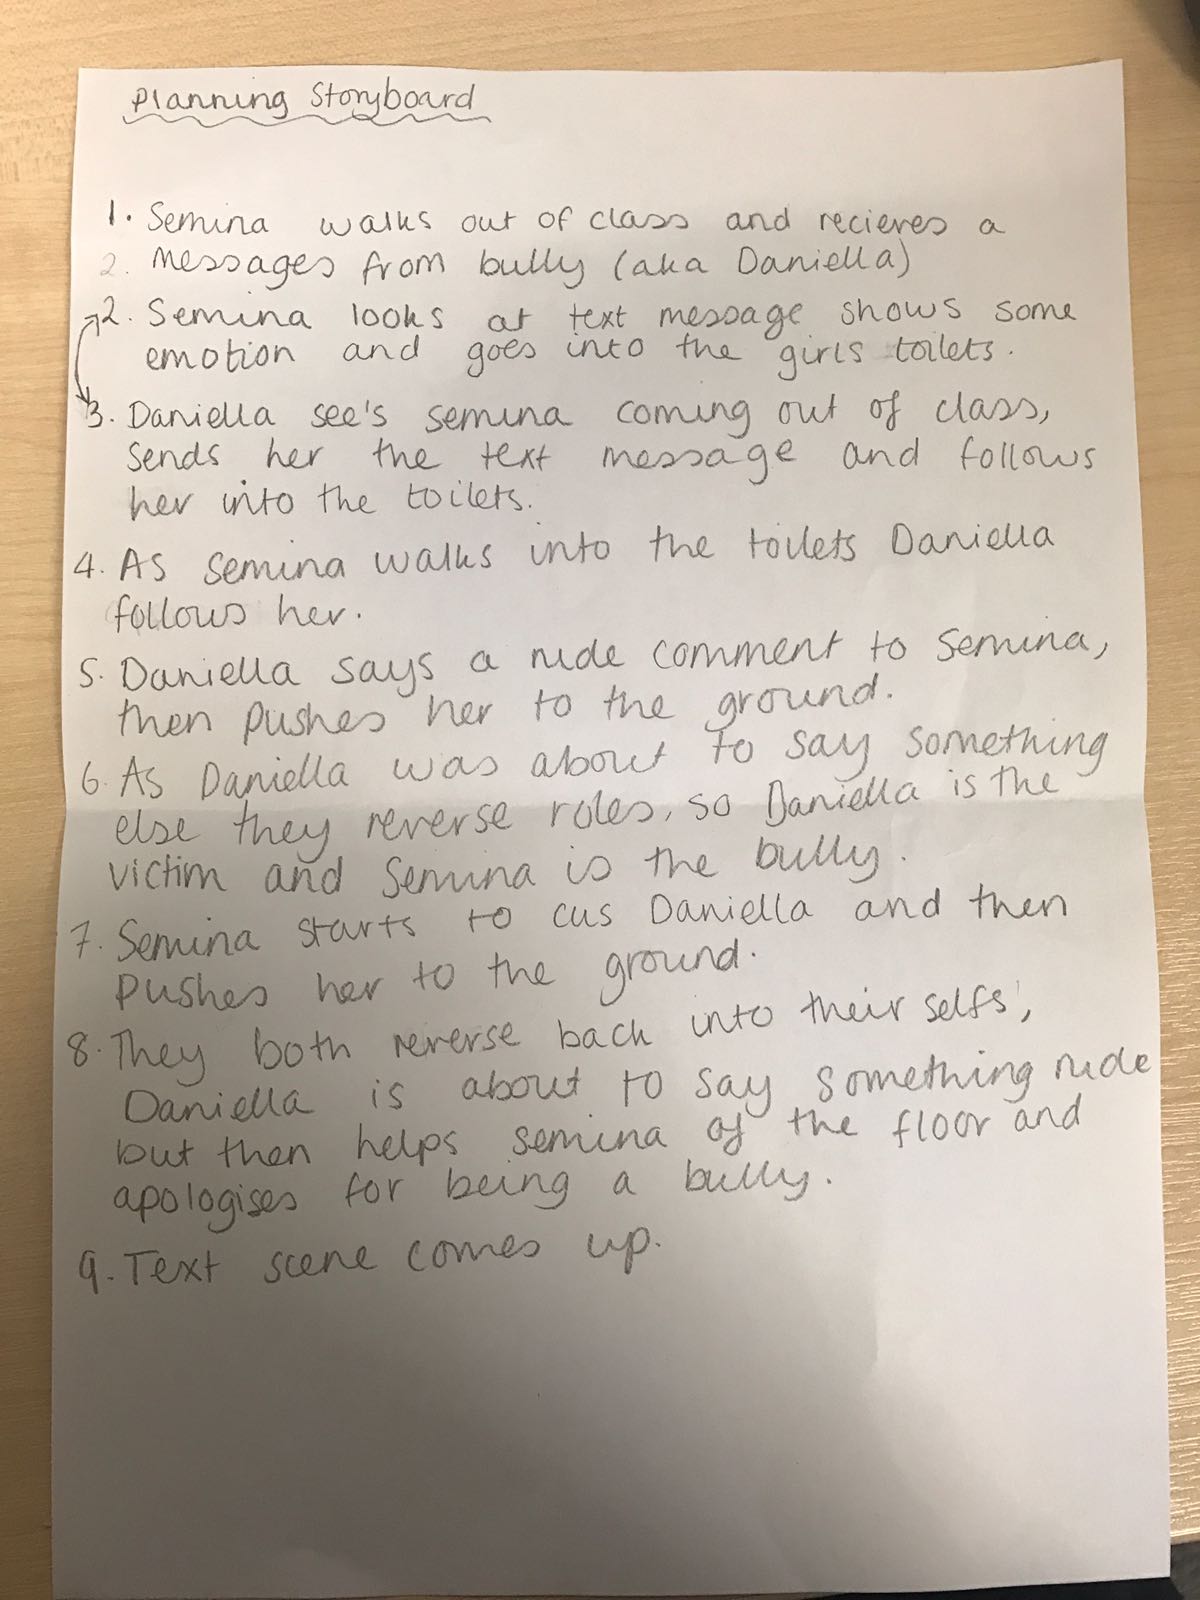 Planning Storyboard
1. Semina walks out of class and recieves a
2. messages from bully (aka Daniella)
2. Semina looks at text message shows some
emotion and goes into the girls toilets.
3. Daniella see's semina coming out of class,
sends her the text message and follows
her into the toilets.
4. As semina walks into the toilets Daniella
follows her.
5. Daniella says a rude comment to Semina,
then pushes her to the ground.
6. As Daniella was about to say something
else they reverse roles, so Daniella is the
victim and Semina is the bully.
7. Semina starts to cus Daniella and then
pushes her to the ground.
8. They both reverse back into their selfs',
Daniella is about to say something rude
but then helps semina of the floor and
apologises for being a bully.
9. Text scene comes up.